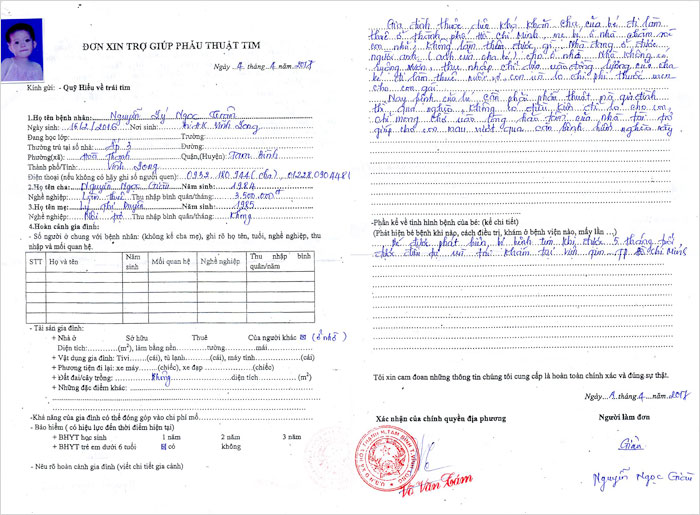 ĐƠN XIN TRỢ GIÚP PHẪU THUẬT TIM
Ngày 4 tháng 4 năm 2017
Kính gửi: - Quỹ Hiểu về trái tim
1.Họ tên bệnh nhân: Nguyễn Lý Ngọc Trâm
Ngày sinh: 15/2/2016 Nơi sinh: BVĐK Vĩnh Long
Đang học lớp: Trường:
Thường trú tại số nhà: Ấp 3 Đường:
Phường(xã): Hòa Thạnh Quận,(Huyện): Tam Bình
Thành phố/Tỉnh: Vĩnh Long
Điện thoại (nếu không có hãy ghi số người quen): (cha)
2.Họ tên cha: Nguyễn Ngọc Giàu Năm sinh: 1984
Nghề nghiệp: Làm thuê Thu nhập bình quân/tháng: 3.500.000đ
3.Họ tên mẹ: Lý Năm sinh: 1985
Nghề nghiệp: Nội trợ Thu nhập bình quân/tháng: Không
4.Hoàn cảnh gia đình:
- Số người ở chung với bệnh nhân: (không kể cha mẹ), ghi rõ họ tên, tuổi, nghề nghiệp, thu
nhập và mối quan hệ.
STT Họ và tên Năm sinh Mối quan hệ Nghề nghiệp Thu nhập bình quân/năm
- Tài sản gia đình:
+ Nhà ở Sở hữu Thuê Của người khác ☒ (ở nhờ)
Diện tích:(m²), làm bằng nền tường mái
+ Vật dụng gia đình: Tivi (cái), tủ lạnh (cái), máy tính (cái)
+ Phương tiện đi lại: xe máy (chiếc), xe đạp (chiếc)
+ Đất đai/cây trồng: Không diện tích (m²)
+ Những đặc điểm khác:
-Khả năng của gia đình có thể đóng góp vào chi phí mổ
- Bảo hiểm ( có hiệu lực đến thời điểm hiện tại)
+ BHYT học sinh 1 năm 2 năm 3 năm
+ BHYT trẻ em dưới 6 tuổi ☒ có không
- Nêu rõ hoàn cảnh gia đình (viết chi tiết gia cảnh)
Gia đình thuộc diện khó khăn cha của bé đi làm
thuê ở thành phố Hồ Chí Minh, mẹ bé ở nhà chăm sóc
con nhỏ, không làm thêm được gì. Nhà đang ở được
người anh (anh của cha bé) cho ở nhờ. Nhà không có
ruộng vườn, thu nhập chỉ dựa vào đồng lương của cha
bé đi làm thuê
cho con gái.
Nay bệnh của bé cần phải phẫu thuật mà gia đình
thì quá nghèo không có điều kiện chi lo cho em,
chỉ mong chờ vào lòng hảo tâm của nhà tài trợ
giúp cho con mau vượt qua cơn bệnh hiểm nghèo này.
-Phần kể về tình hình bệnh của bé: (kể chi tiết)
(Phát hiện bé bệnh khi nào, cách điều trị, khám ở bệnh viện nào, mấy lần ...)
Bé được phát hiện bị bệnh tim khi được 5 tháng tuổi
khám tại viện tim TP Hồ Chí Minh
Tôi xin cam đoan những thông tin chúng tôi cung cấp là hoàn toàn chính xác và đúng sự thật.
Ngày 4 tháng 4 năm 2017
Xác nhận của chính quyền địa phương Người làm đơn
Giàu
Võ Văn Tám
Nguyễn Ngọc Giàu